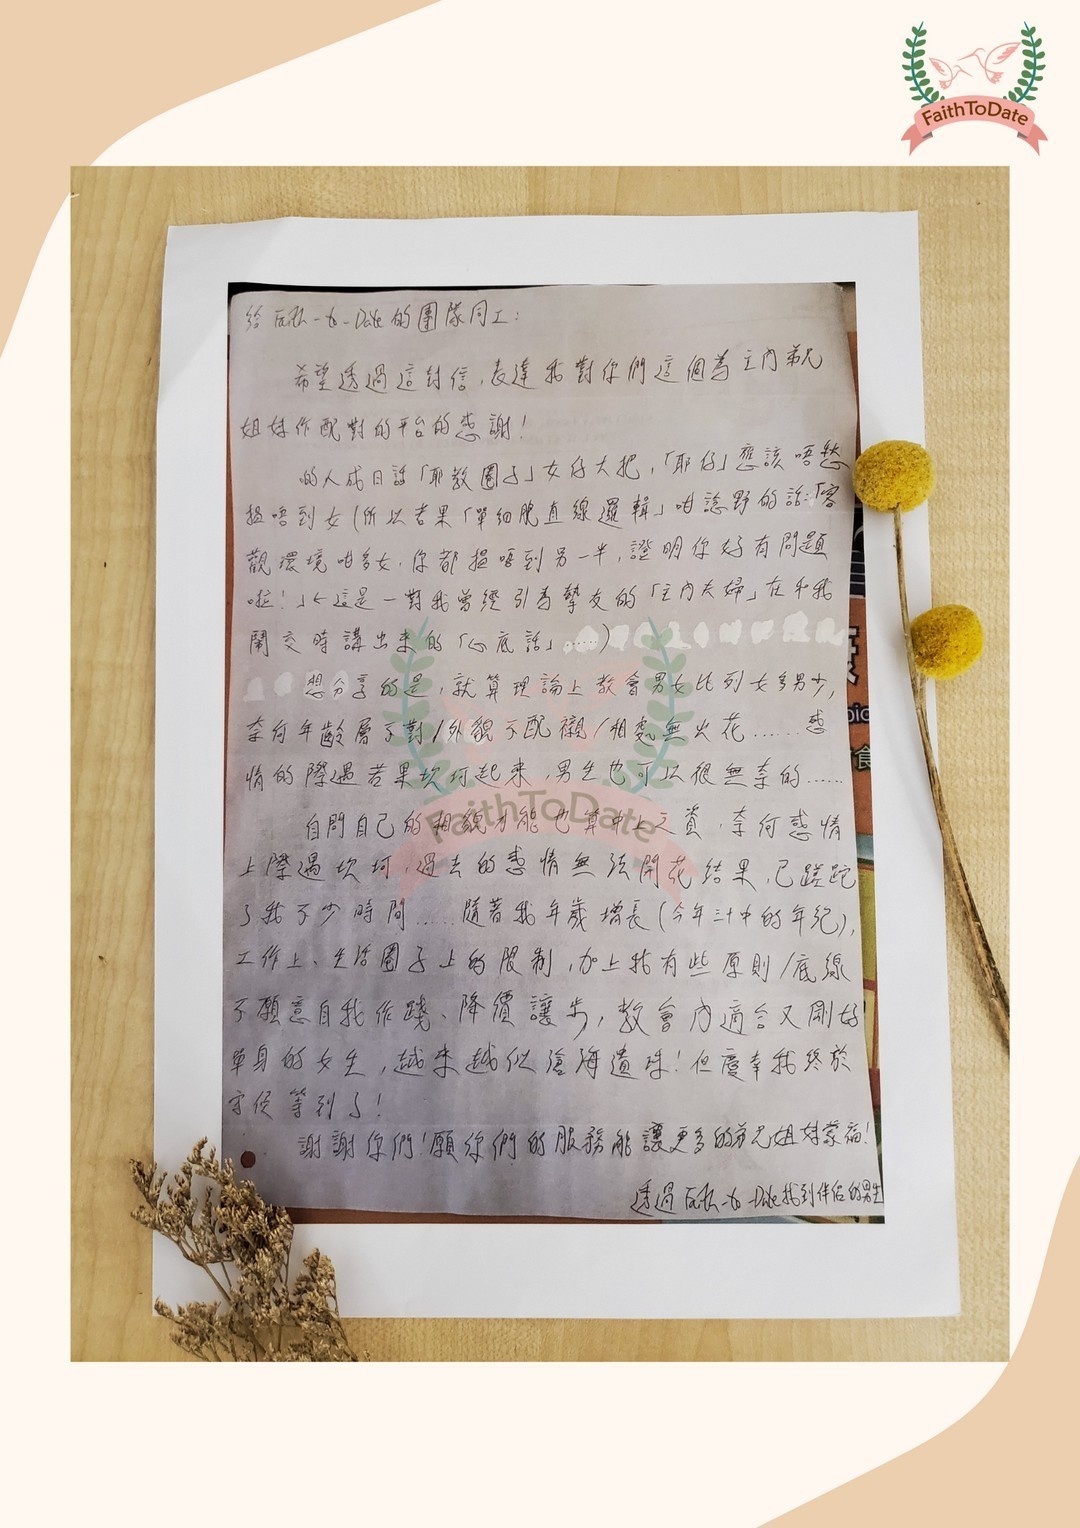 FaithToDate
給 Faith-to-Date的團隊同工：
希望透過這封信，表達我對你們這個為主內弟兄
姐妹作配對的平台的感謝！
的人成日話「耶教圈子」女仔大把，「耶仔」應該唔愁
搵唔到女（所以若果「單細胞直線邏輯」咁諗野的話：「客
觀環境咁多女，你都搵唔到另一半，證明你好有問題
啦！」←這是一對我曾經引為摯友的「主內夫婦」在和我
鬧交時講出來的「心底話」……）
想分享的是，就算理論上教會男女比列女多男少，
奈何年齡層不對/外貌不配襯/相處無火花……感
情的際遇若果坎坷起來，男生也可以很無奈的……
自問自己的相貌才能也算中上之資，奈何感情
上際遇坎坷，過去的感情無法開花結果，已蹉跎
了我不少時間……隨著我年歲增長（今年三十中的年紀），
工作上、生活圈子上的限制，加上我有些原則/底線
不願意自我作踐、降價讓步，教會內適合又剛好
單身的女生，越來越似滄海遺珠！但慶幸我終於
守候等到了！
謝謝你們！願你們的服務能讓更多的弟兄姐妹蒙福！
透過 Faith-to-Date找到伴侶的男生
FaithToDate